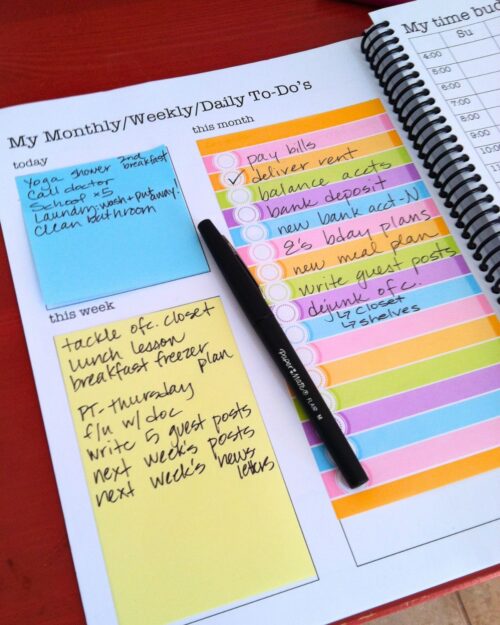 My Monthly/Weekly/Daily To-Do's
today
Yoga shower 2nd breakfast
Call doctor
School x5
Laundry wash + put away
Clean bathroom
this week
tackle ofc. closet
lunch lesson
breakfast freezer
plan
PT - thursday
f/u w/doc
write 5 guest posts
next week's posts
next week's news
letters
this month
pay bills
✓ deliver rent
balance accts
bank deposit
new bank acct-N
E's bday plans
new meal plan
write guest posts
dejunk ofc.
↳ closet
↳ shelves
Paper Mate FLAIR M
My time bud
Su
4:00
5:00
6:00
7:00
8:00
9:00
10:00
11